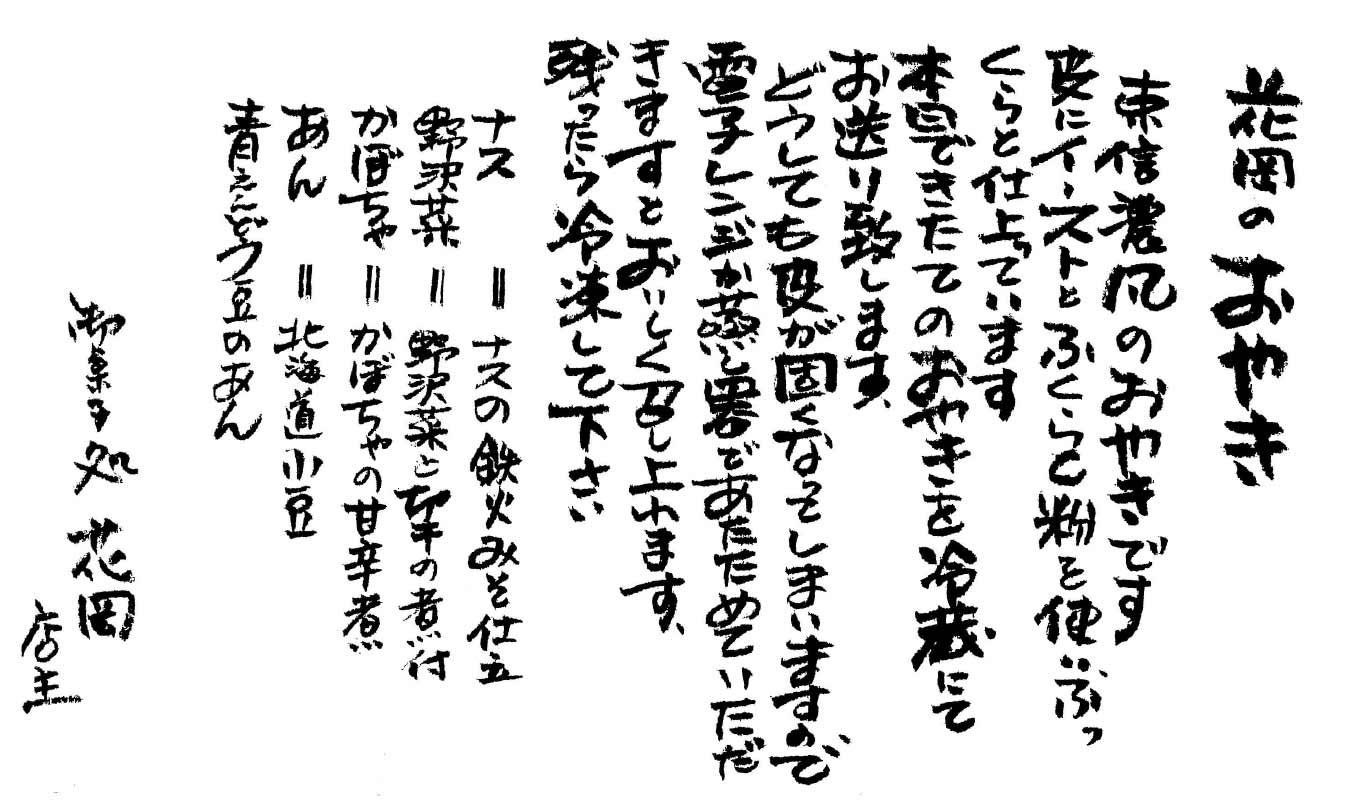 花岡のおやき
東信濃風のおやきです
皮にイーストとふくらし粉を使いぷっ
くらと仕上っています
本日できたてのおやきを冷蔵にて
お送り致します、
どうしても皮が固くなってしまいますので
電子レンジか蒸し器であたためていただ
きますとおいしく召し上れます、
残ったら冷凍して下さい
ナス = ナスの鉄火みそ仕立
野沢菜 = 野沢菜と の煮付
かぼちゃ = かぼちゃの甘辛煮
あん = 北海道小豆
青えんどう豆のあん
御菓子処 花岡
店主